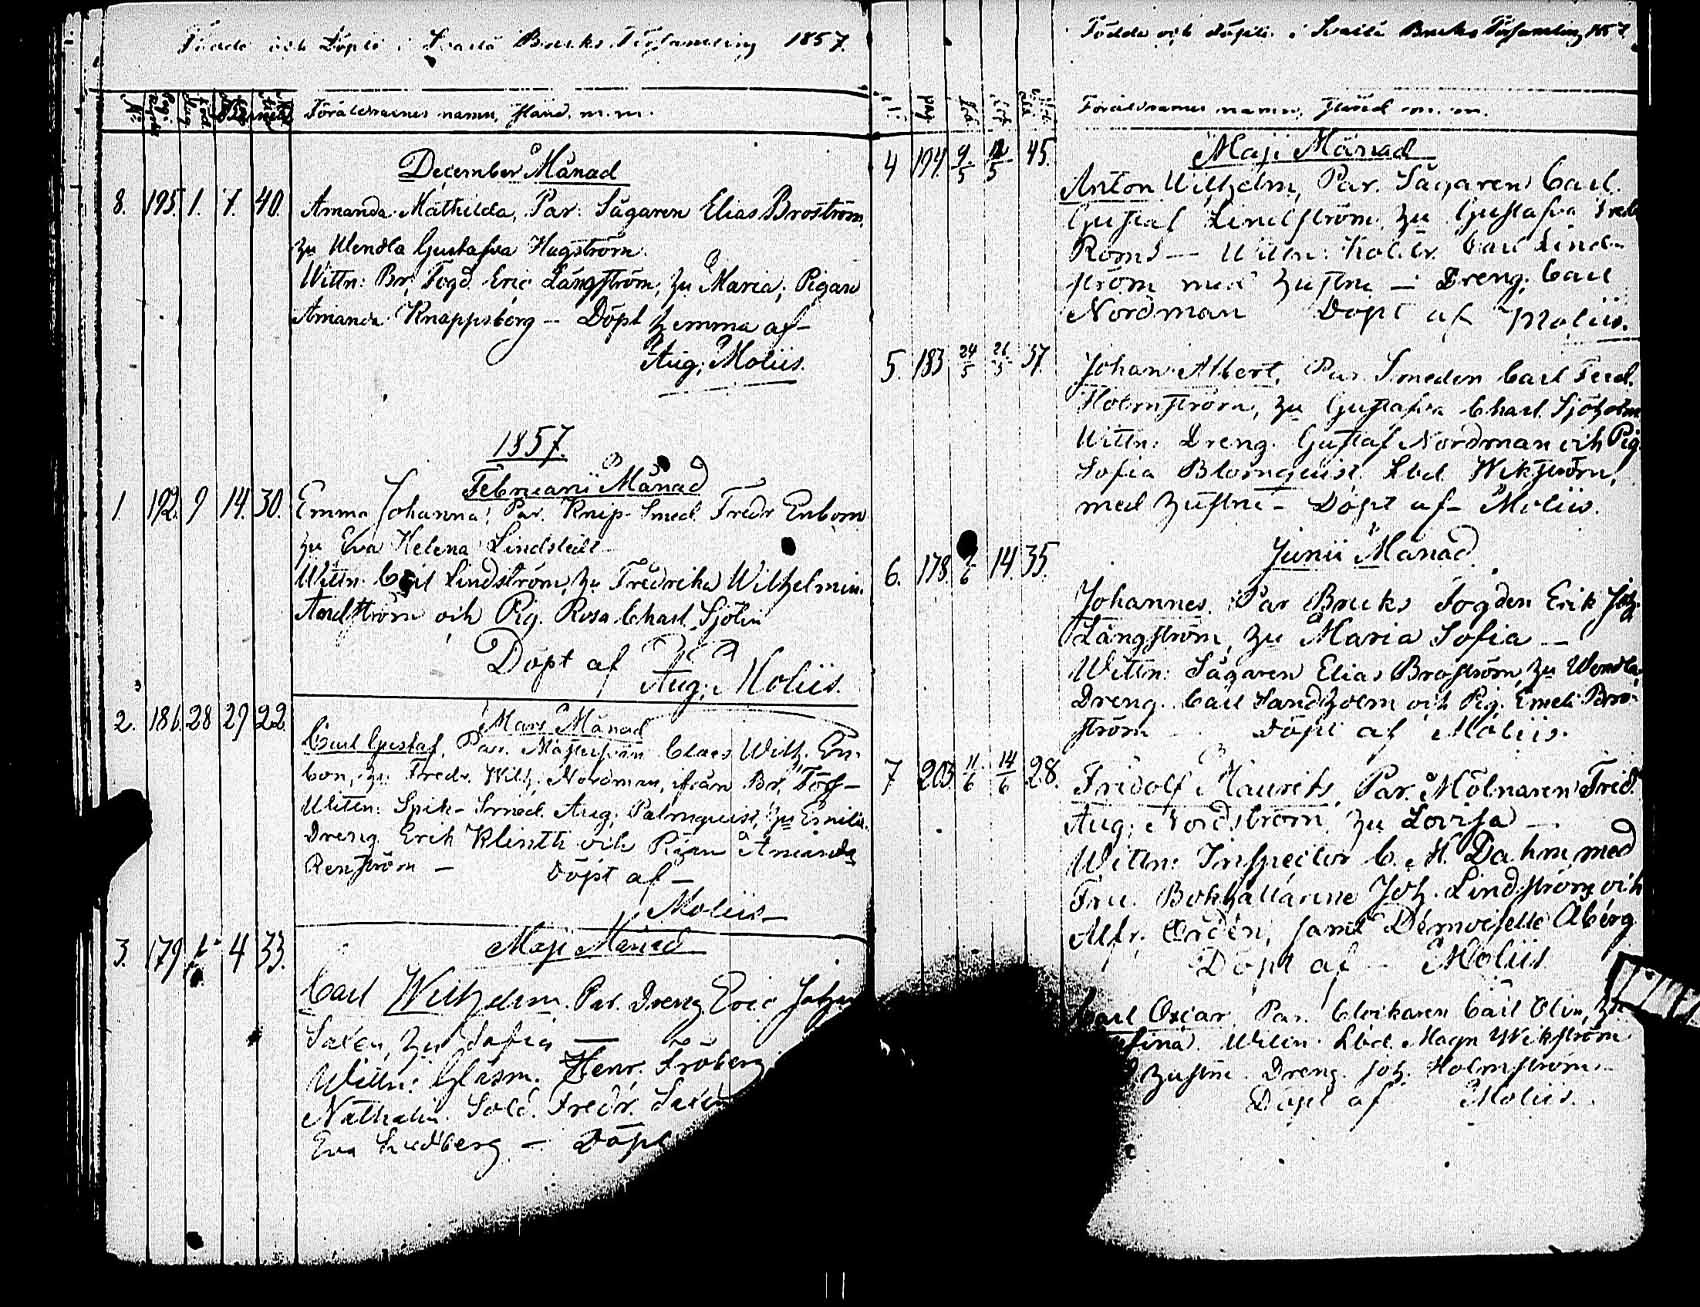 Födde och Döpte i Svartå Bruks Församling 1857.
Föräldrarnes namn, stånd, m.m.
December Månad
8. 195. 1. 7. 40. Amanda Mathilda, Par: Sågaren Elias Broström,
hu Wendla Gustafva Hagström.
Wittn: Br. fogd. Eric Långström, hu Maria, Pigan
Amanda Knappsberg – Döpt hemma af –
Aug; Moliis.
1857.
Februarii Månad
1. 192. 9 14. 30. Emma Johanna, Par. Knip-Smed. Fredr Enbom
hu Eva Helena Lindstedt
Wittn: Carl Lindström, hu Fredrika Wilhelmin.
och Pig. Rosa Charl. Sjölin
Döpt af
Aug; Moliis.
Mars Månad
2. 186 28 29 22. Carl Gustaf, Par. Claes Wilh; En-
bom, hu Fredr. Wilh; Nordman, från Br. Förs –
Wittn: Spik-Smed. Aug; Palmquist, hu Emilia.
Dreng Erik Klinth och Pigan Amanda
Renström – Döpt af –
Moliis –
Maji Månad
3. 179 4 33. Carl Wilhelm. Par. Dreng Eric Johan
Saxen, hu Sofia –
Wittn: Glasm. Henr. Fröberg
Nathalia. Sold. Fredr. Saxén
Eva Lindberg – Döpt
Födde och döpte i Svartå Bruks Församling 1857.
Föräldrarnes namn, stånd m. m.
Maji Månad
4 194 9/5 12/5 45. Anton Wilhelm, Par. Sågaren Carl
Gustaf Lindström, hu Gustafva
– Wittn: Kolbr. Carl Lind-
ström med hustru – Dreng. Carl
Nordman Döpt af Moliis.
5. 183 24/5 26/5 37. Johan Albert, Par. Smeden Carl Ferd.
Holmström, hu Gustafva Charl. Sjöholm
Wittn: Dreng. Gustaf Nordman och Pig.
Sofia Blomquist. Lbd. Wikström,
med hustru – Döpt af – Moliis.
Junii Månad
6. 178 /6 14. 35. Johannes. Par Bruks fogden Erik Joh.
Långström, hu Maria Sofia –
Wittn: Sågaren Elias Broström, hu Wendla.
Dreng. Carl Sandholm och Pig. Emeli Bro-
ström Döpt af Moliis.
7 203 11/6 14/6 28. Fridolf Maurits, Par. Mölnaren Fred.
Aug; Nordström, hu Lovisa –
Wittn: Inspector C. A. Dahm, med
Fru. Bokhållarene Joh. Lindström och
Alfr. Ordén, samt Demoiselle Åberg
Döpt af – Moliis
Carl Oscar, Par. Carl Olin, hu
Wittn. Lbd. Magn Wikström
hustru. Dreng. Joh. Holmström –
Döpt af Moliis.